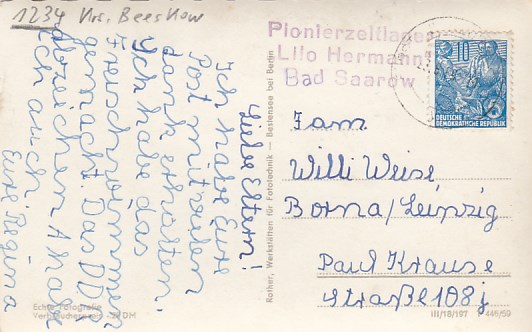 1234 Krs. Beeskow
Liebe Eltern!
Ich habe Eure
Post mit vielen
dank erhalten.
Ich habe das
Freischwimmer
gemacht. Das DDR
abzeichen A habe
ich auch.
Eure Regina
Echte Fotografie
Rother, Werkstätten für Fototechnik — Bestensee bei Berlin
Pionierzeltlager
Lilo Hermann
Bad Saarow
10
DEUTSCHE
DEMOKRATISCHE REPUBLIK
Fam
Willi Weise
Borna/Leipzig
Paul Krause
straße 108j
III/18/197
446/59